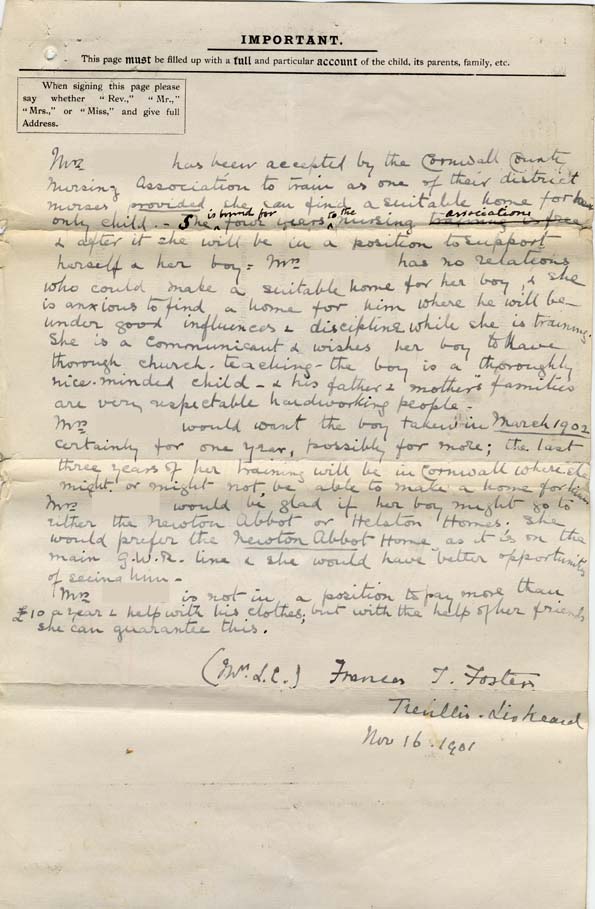 IMPORTANT.
This page must be filled up with a full and particular account of the child, its parents, family, etc.
When signing this page please
say whether "Rev.," "Mr.,"
"Mrs.," or "Miss," and give full
Address.
Mrs has been accepted by the Cornwall County
Nursing Association to train as one of their district
nurses provided she can find a suitable home for her
only child. - She is bound for four years to the nursing associations
& after it she will be in a position to support
herself & her boy - Mrs has no relations
who could make a suitable home for her boy, & she
is anxious to find a home for him where he will be
under good influences & discipline while she is training.
She is a communicant & wishes her boy to have
thorough church-teaching - the boy is a thoroughly
nice-minded child - & his father & mother's families
are very respectable hardworking people -
Mrs would want the boy taken in March 1902
certainly for one year, possibly for more; the last
three years of her training will be in Cornwall where she
might, or might not, be able to make a home for him
Mrs would be glad if her boy might go to
either the Newton Abbot or Helston Homes. She
would prefer the Newton Abbot Home as it is on the
main G.W.R. line & she would have better opportunities
of seeing him -
Mrs is not in a position to pay more than
£10 a year & help with his clothes, but with the help of her friends
she can guarantee this.
Frances T. Foster
Trevillis - Liskeard
Nov 16 - 1901